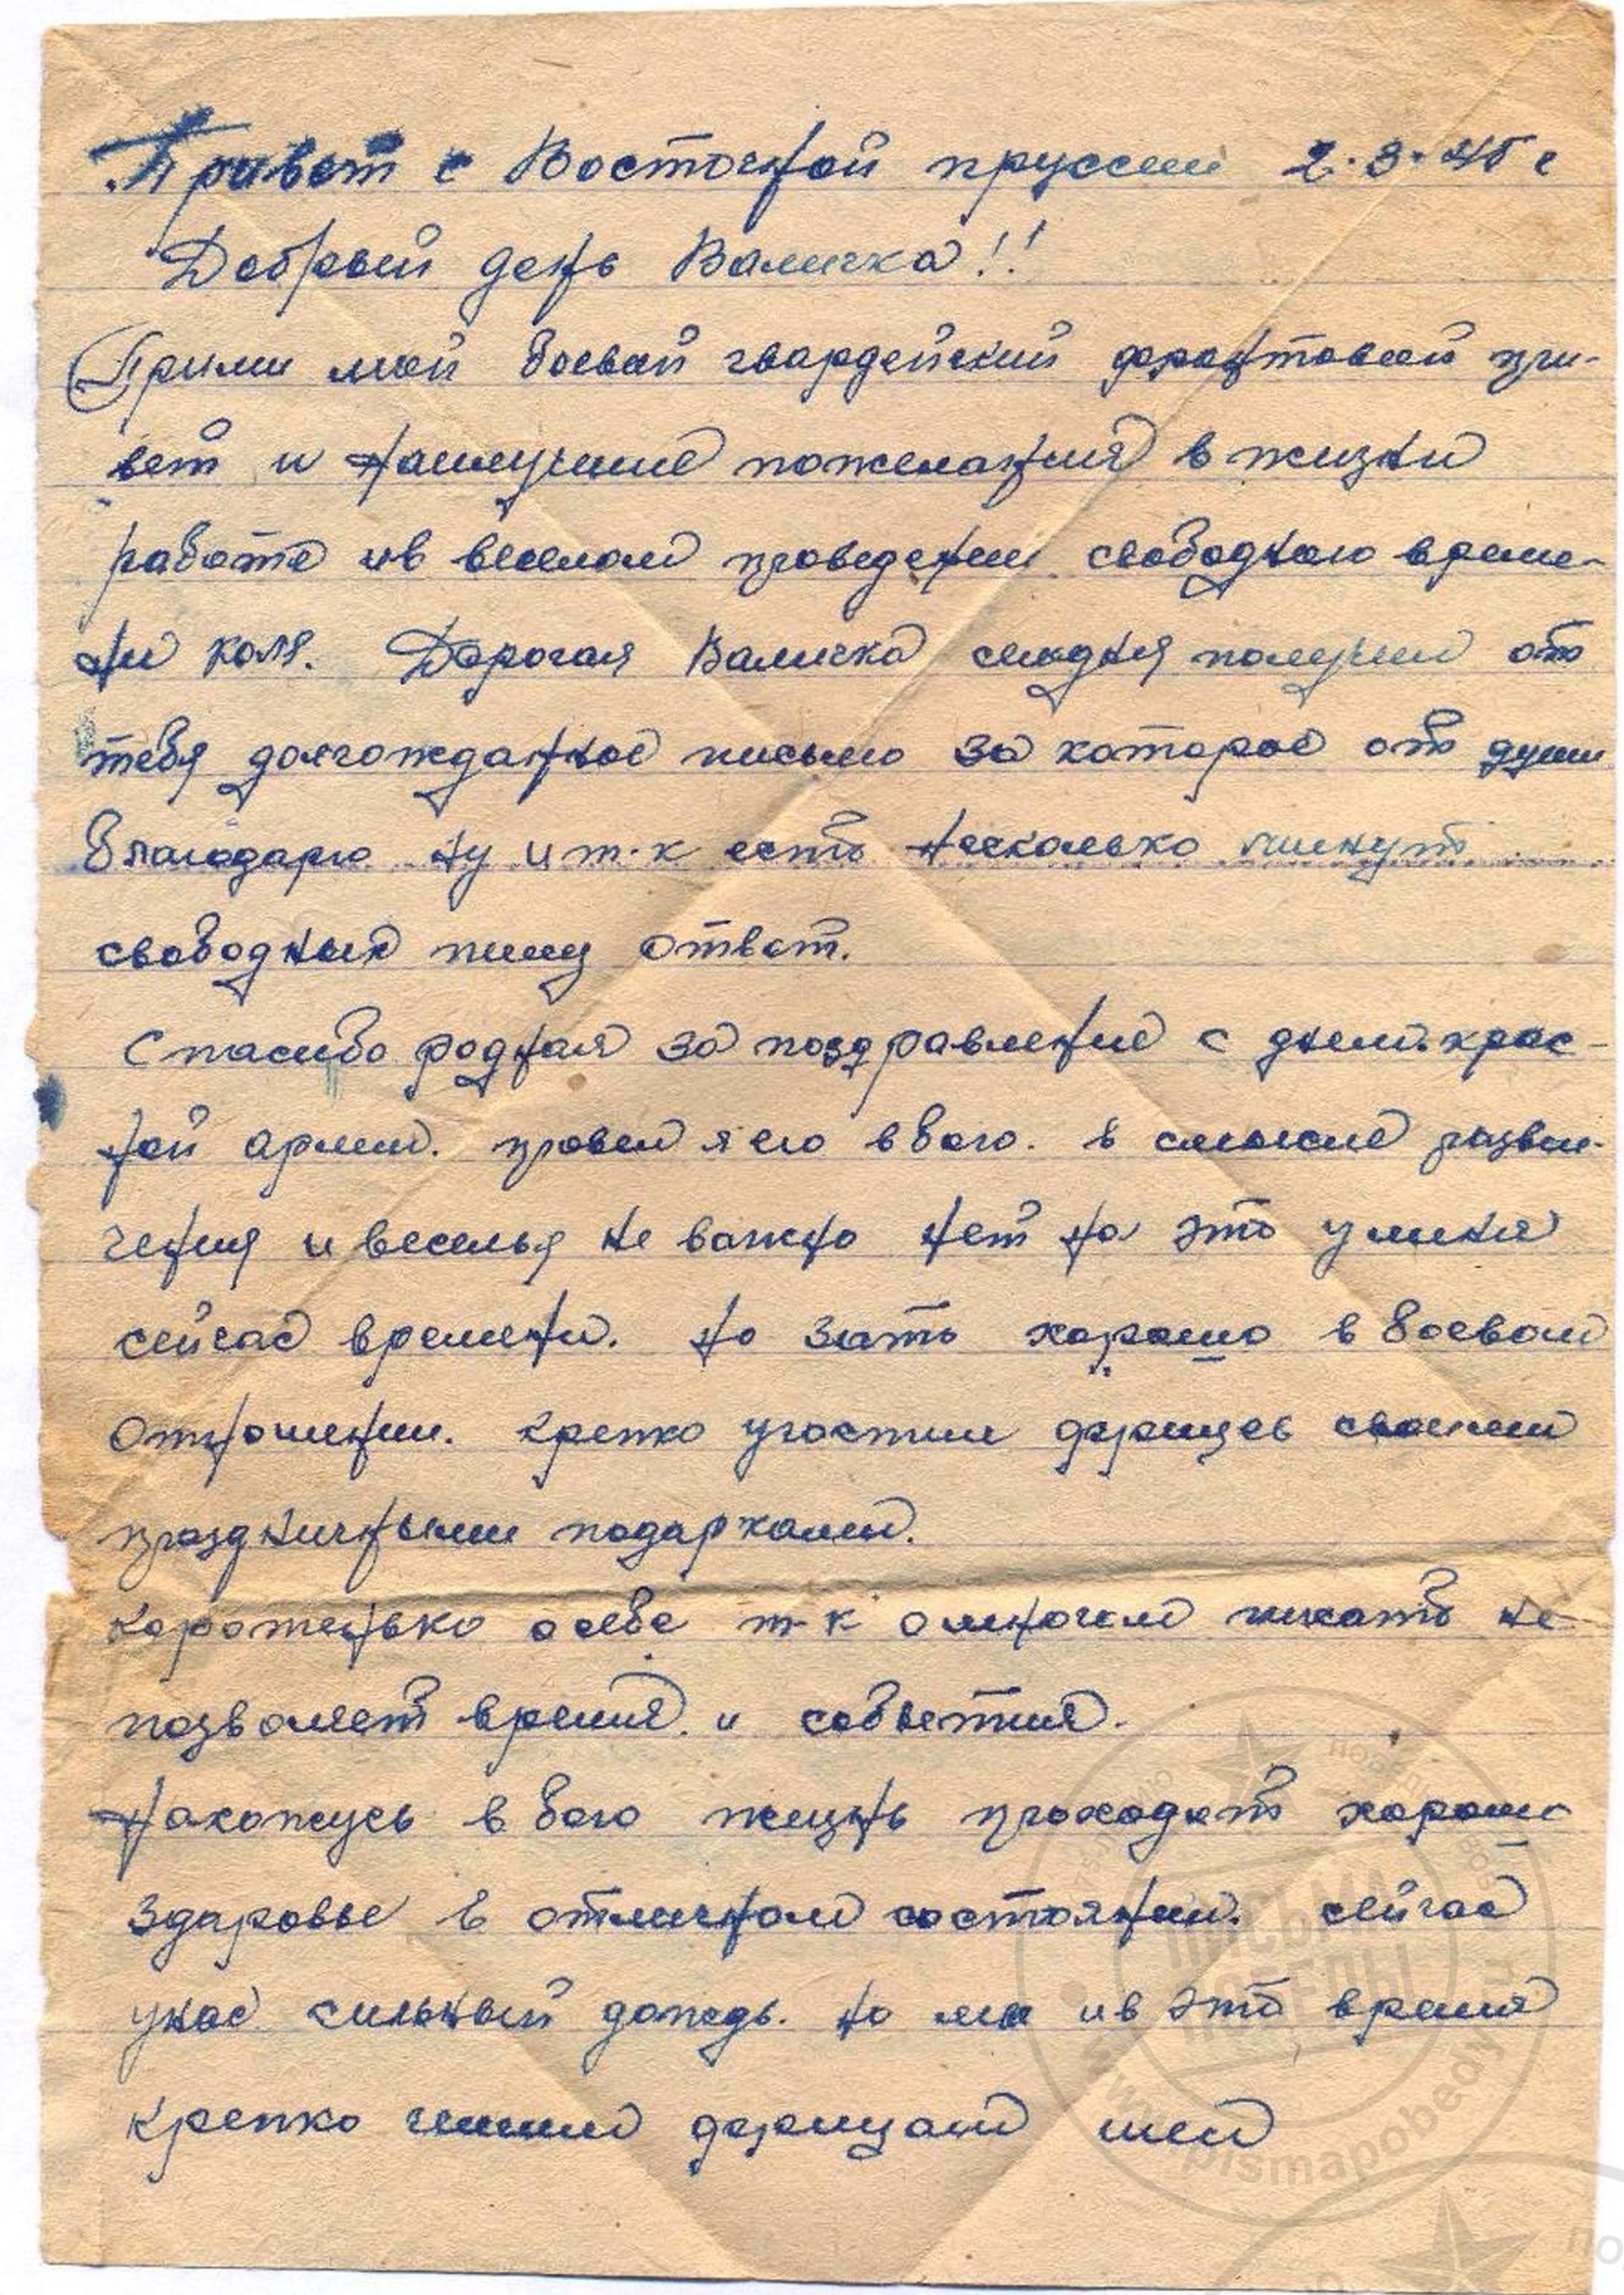 Привет с Восточной пруссии 2.3.45 г
Добрый день Валичка!!
Прими мой боевой гвардейский фронтовой при-
вет и наилучшие пожелания в жизни
работе и в веселом проведении свободного време-
ни Коля. Дорогая Валичка сегодня получил от
тебя долгожданное письмо за которое от души
благодарю ну и т.к есть несколько минут
свободных пишу ответ.
Спасибо родная за поздравление с днем крас-
ной армии. провел я его в бою. в смысле развле-
чения и веселья не важно нет на это у меня
сейчас времени. но зать хорошо в боевом
отношении. крепко угостили фрицев своими
праздничными подарками.
Коротенько о себе т-к о многом писать не
позволяет время и обстоятельства.
Нахожусь в бою жизнь проходит хорошо
здоровье в отличном состоянии. сейчас
у нас сильный дождь. но мы и в это время
крепко чешим фрицам шеи
ПИСЬМА ПОБЕДЫ
www.pismapobedy.ru